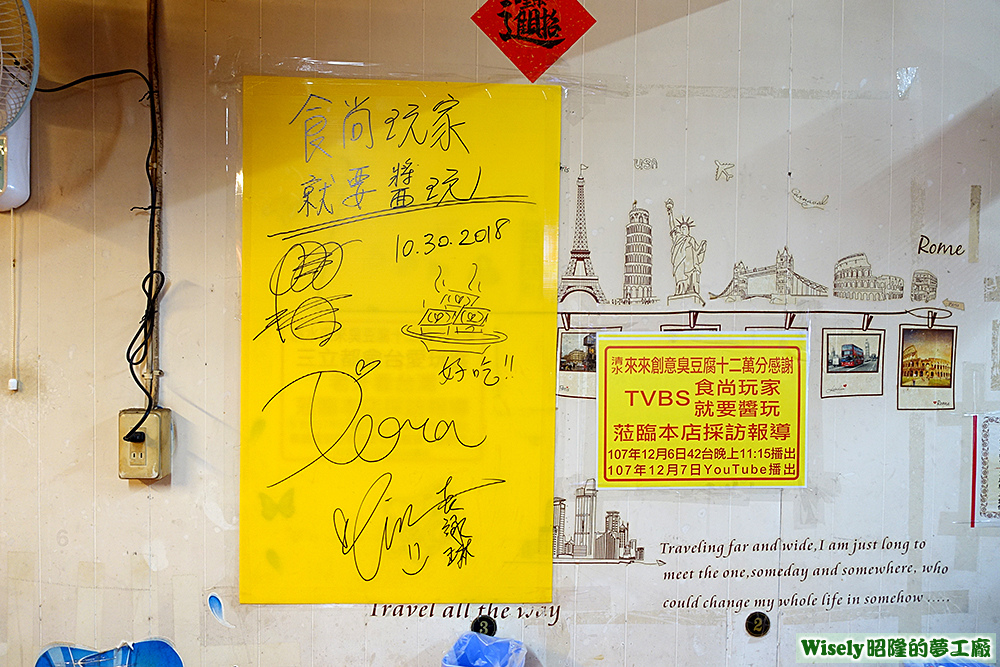 食尚玩家
就要醬玩!
10.30.2018
好吃!!
USA
Rome
清水 來來創意臭豆腐十二萬分感謝
TVBS 食尚玩家
就要醬玩
蒞臨本店採訪報導
107年12月6日42台晚上11:15播出
107年12月7日YouTube播出
Traveling far and wide,I am just long to
meet the one,someday and somewhere, who
could change my whole life in somehow .....
Travel all the way
3
2
6
Wisely昭隆的夢工廠